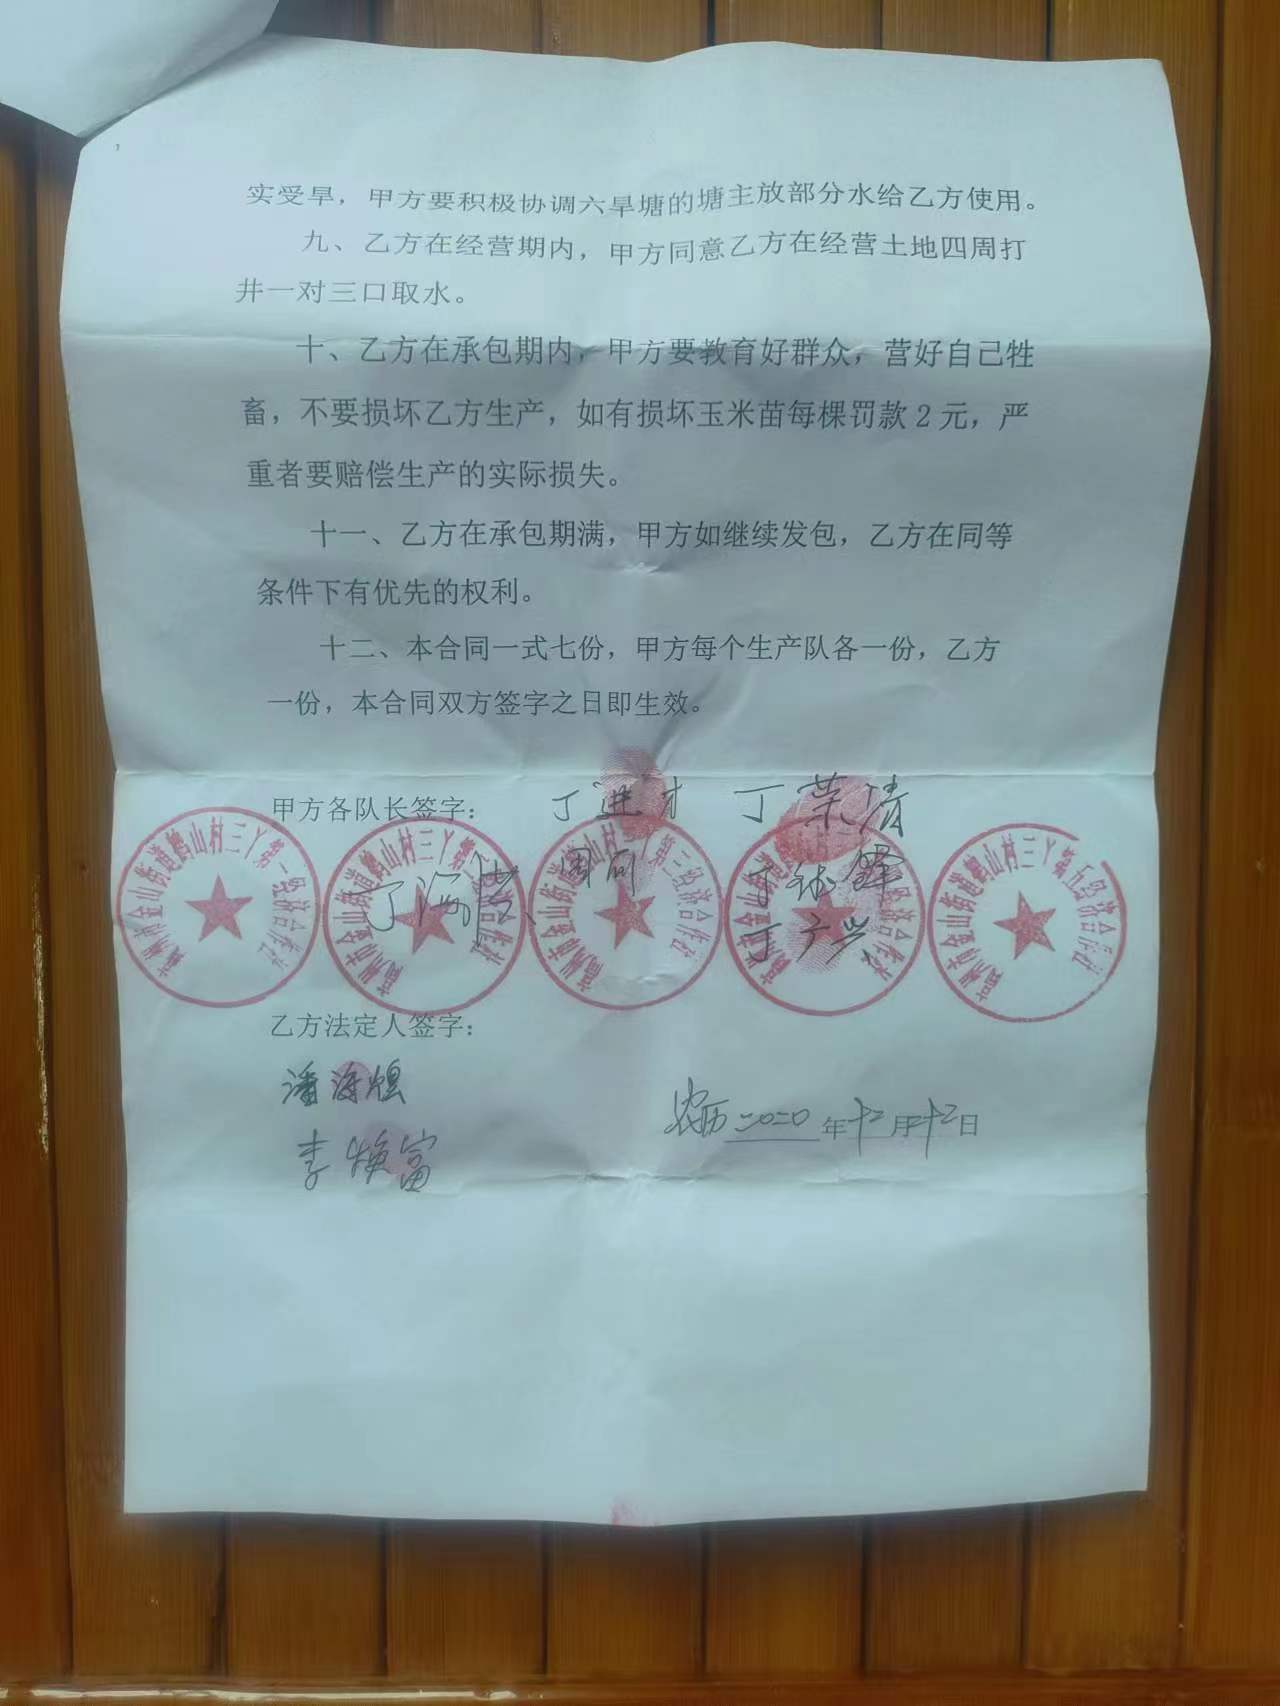 实受旱，甲方要积极协调六旱塘的塘主放部分水给乙方使用。
九、乙方在经营期内，甲方同意乙方在经营土地四周打
井一对三口取水。
十、乙方在承包期内，甲方要教育好群众，营好自己牲
畜，不要损坏乙方生产，如有损坏玉米苗每棵罚款2元，严
重者要赔偿生产的实际损失。
十一、乙方在承包期满，甲方如继续发包，乙方在同等
条件下有优先的权利。
十二、本合同一式七份，甲方每个生产队各一份，乙方
一份，本合同双方签字之日即生效。
甲方各队长签字： 丁进才 丁荣清
丁广兴
高州市金山街道鹤山村三丫第一经济合作社
高州市金山街道鹤山村三丫第二经济合作社
高州市金山街道鹤山村三丫第三经济合作社
高州市金山街道鹤山村三丫第 经济合作社
高州市金山街道鹤山村三丫第五经济合作社
乙方法定人签字：
潘海
李焕富
农历二0二0年十二月十二日